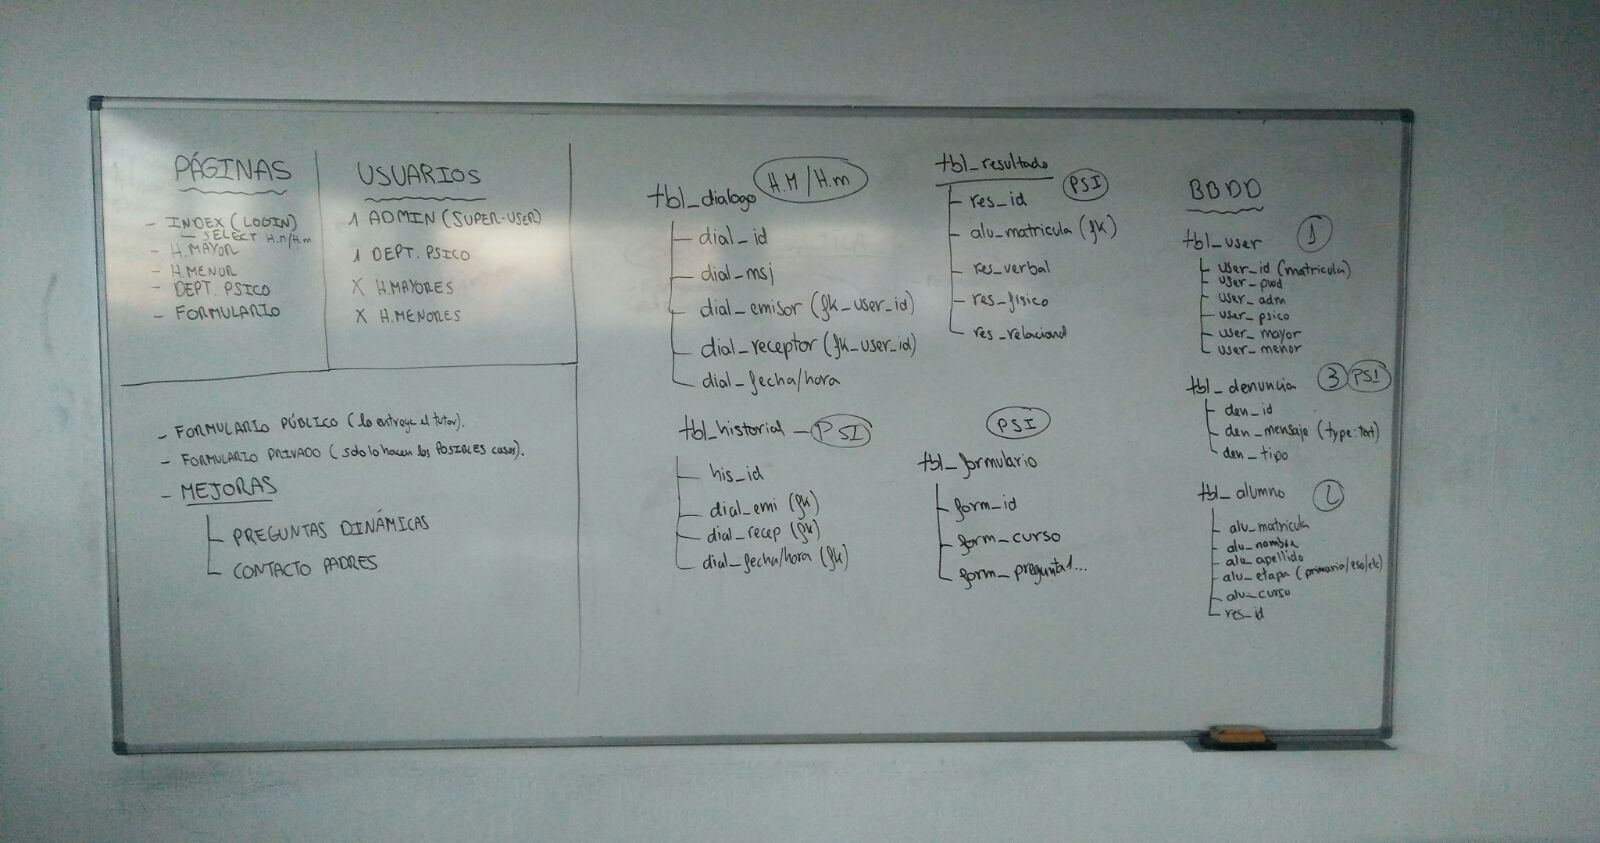 PÁGINAS
- INDEX (LOGIN)
- SELECT H.M/H.m
- H.MAYOR
- H.MENOR
- DEPT. PSICO
- FORMULARIO
USUARIOS
1 ADMIN (SUPER-USER)
1 DEPT. PSICO
X H.MAYORES
X H.MENORES
- FORMULARIO PÚBLICO (lo entrega el tutor).
- FORMULARIO PRIVADO (solo lo hacen los POSIBLES casos).
- MEJORAS
PREGUNTAS DINÁMICAS
CONTACTO PADRES
tbl_dialogo H.M/H.m
dial_id
dial_msj
dial_emisor (fk_user_id)
dial_receptor (fk_user_id)
dial_fecha/hora
tbl_historial - PSI
his_id
dial_emi (fk)
dial_recep (fk)
dial_fecha/hora (fk)
tbl_resultado PSI
res_id
alu_matricula (fk)
res_verbal
res_fisico
res_relacional
PSI
tbl_formulario
form_id
form_curso
form_pregunta1...
BBDD
tbl_user 1
user_id (matricula)
user_pwd
user_adm
user_psico
user_mayor
user_menor
tbl_denuncia 3 PSI
den_id
den_mensaje (type:text)
den_tipo
tbl_alumno 2
alu_matricula
alu_nombre
alu_apellido
alu_etapa (primaria/eso/etc)
alu_curso
res_id